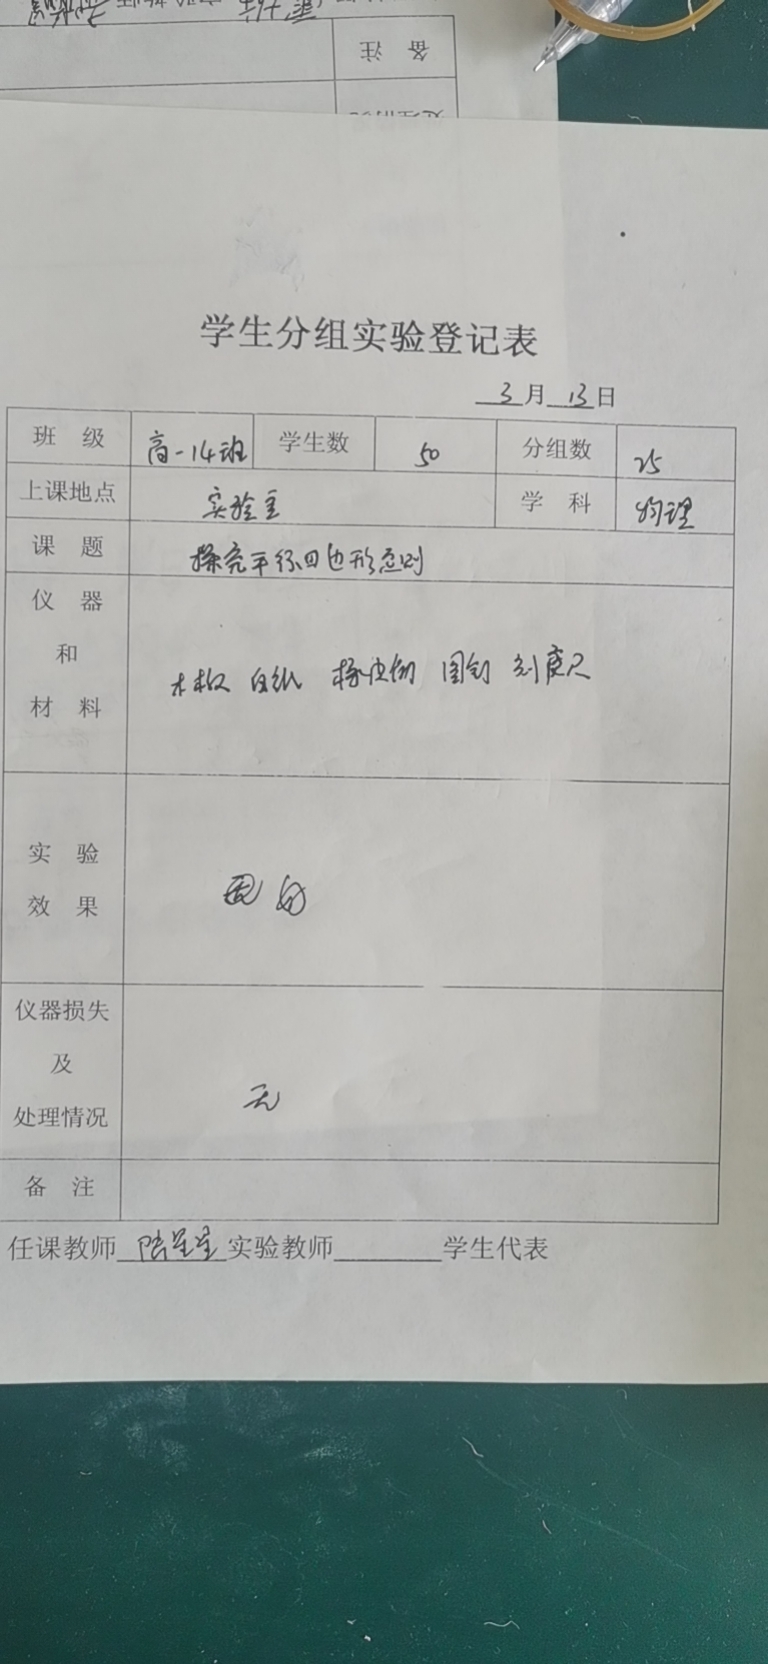 备 注
学生分组实验登记表
3月13日
班 级 高一14班 学生数 50 分组数 25
上课地点 实验室 学 科 物理
课 题 探究平行四边形法则
仪 器
和
材 料
木板 白纸 橡皮筋 图钉 刻度尺
实 验
效 果
良好
仪器损失
及
处理情况
无
备 注
任课教师 陆星星 实验教师 学生代表